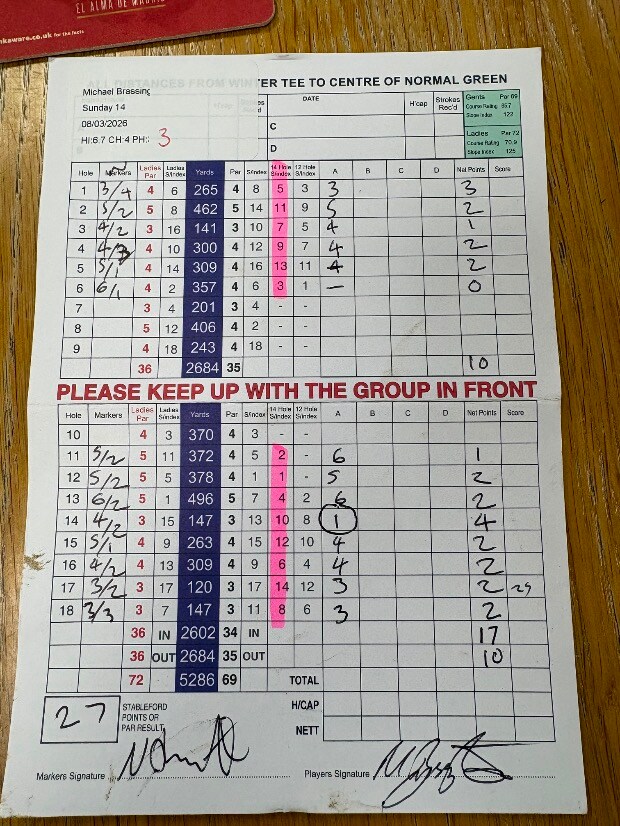 EL ALMA DE MADRID
nkaware.co.uk for the facts
TER TEE TO CENTRE OF NORMAL GREEN
Michael Brassing
Sunday 14
08/03/2026
HI:6.7 CH:4 PH: 3
DATE H'cap Strokes Rec'd
C
D
Gents Par 69
Course Rating 65.7
Slope Index 122
Ladies Par 72
Course Rating 70.9
Slope Index 125
Hole Markers Ladies Par Ladies S/Index Yards Par S/Index 14 Hole S/Index 12 Hole S/Index A B C D Net Points Score
1 3/4 4 6 265 4 8 5 3 3 3
2 5/2 5 8 462 5 14 11 9 5 2
3 4/2 3 16 141 3 10 7 5 4 1
4 4/3 4 10 300 4 12 9 7 4 2
5 5/1 4 14 309 4 16 13 11 4 2
6 6/1 4 2 357 4 6 3 1 – 0
7 3 4 201 3 4 - -
8 5 12 406 4 2 - -
9 4 18 243 4 18 - -
36 2684 35 10
PLEASE KEEP UP WITH THE GROUP IN FRONT
Hole Markers Ladies Par Ladies S/Index Yards Par S/Index 14 Hole S/Index 12 Hole S/Index A B C D Net Points Score
10 4 3 370 4 3 - -
11 5/2 5 11 372 4 5 2 - 6 1
12 5/2 5 5 378 4 1 1 - 5 2
13 6/2 5 1 496 5 7 4 2 6 2
14 4/2 3 15 147 3 13 10 8 1 4
15 5/1 4 9 263 4 15 12 10 4 2
16 4/2 4 13 309 4 9 6 4 4 2
17 3/2 3 17 120 3 17 14 12 3 2 25
18 3/3 3 7 147 3 11 8 6 3 2
36 IN 2602 34 IN 17
36 OUT 2684 35 OUT 10
72 5286 69 TOTAL
27 STABLEFORD POINTS OR PAR RESULT
H/CAP
NETT
Markers Signature Players Signature